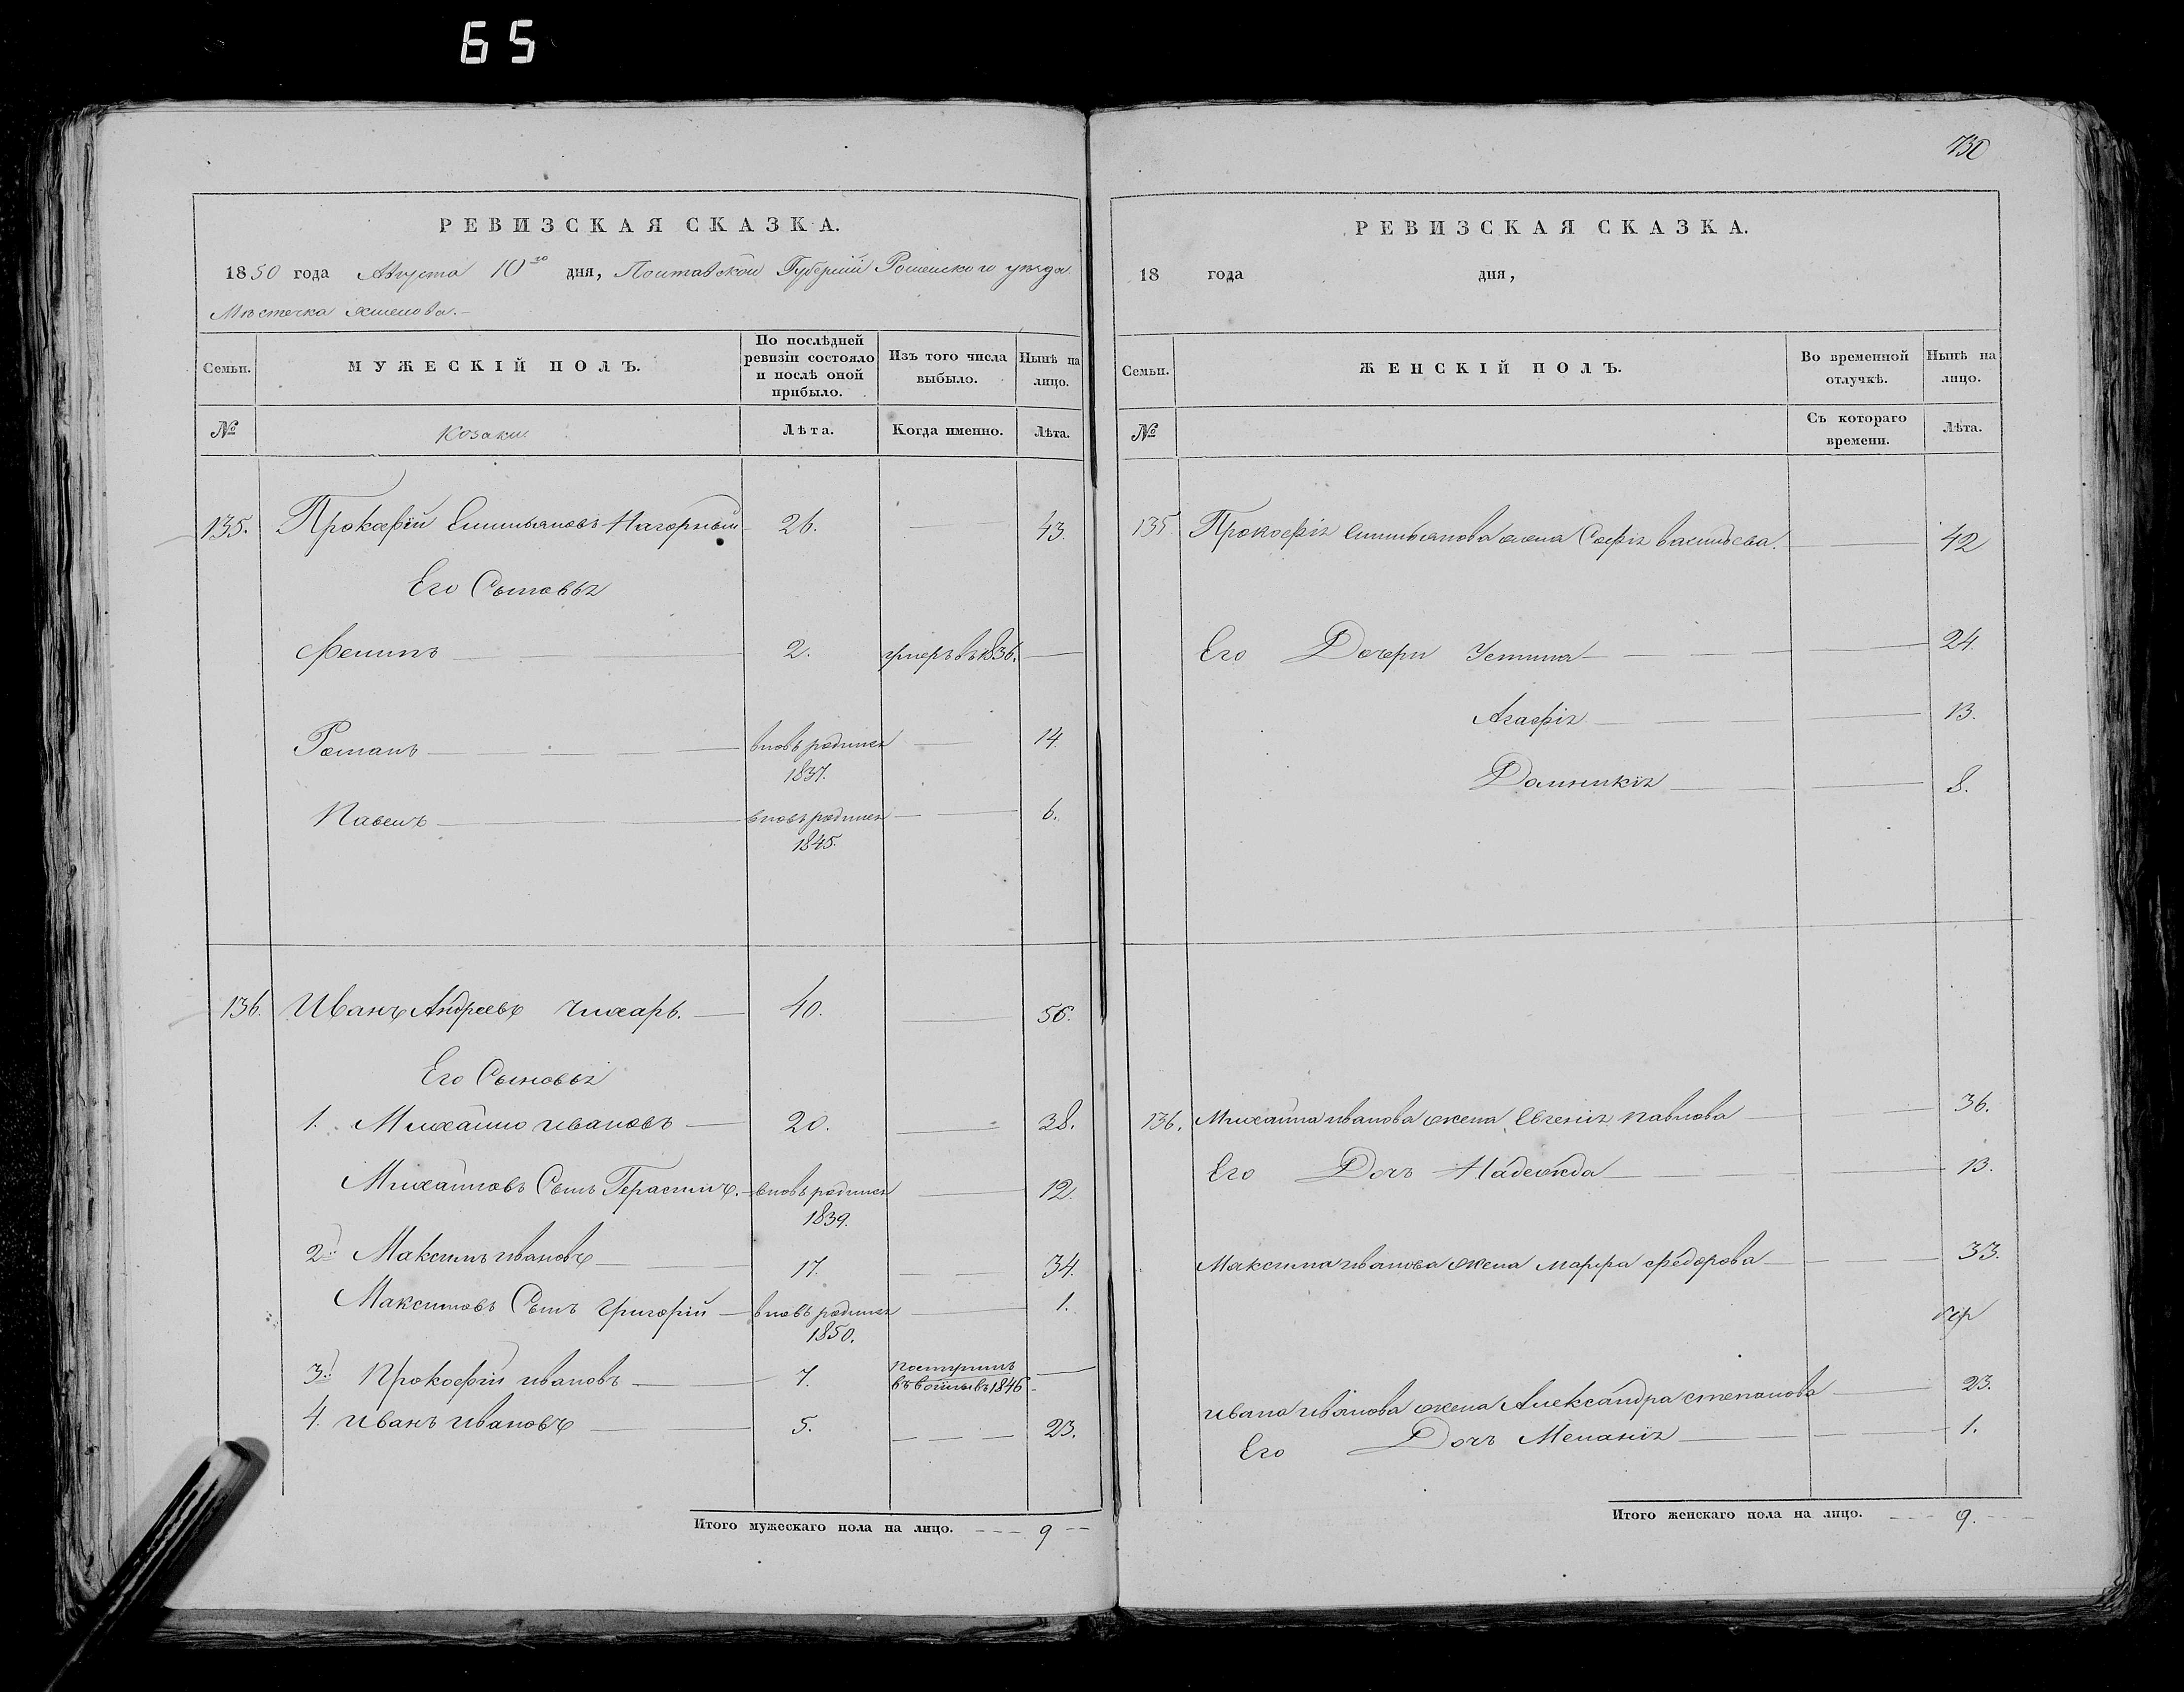 65
730
РЕВИЗСКАЯ СКАЗКА.
1850 года Августа 10го дня, Полтавской Губерніи Роменского уѣзда
Мѣстечка
Семьи.
МУЖЕСКІЙ ПОЛЪ.
По послѣдней ревизіи состояло и послѣ оной прибыло.
Изъ того числа выбыло.
Нынѣ на лицо.
№
Козаки
Лѣта.
Когда именно.
Лѣта.
135. Прокофій Емильяновъ Нагорный 26. — 43.
Его Сыновья
Филипъ — 2. умеръ въ 1836. —
Романъ — вновь родился — 14.
1837.
Павелъ — вновь родился — 6.
1845.
136. Иванъ Андреевъ Чихарь. — 40. — 56.
Его Сыновья
1. Михайло ивановъ — 20. — 38.
Михайловъ Сынъ Герасимъ. — вновь родился — 12.
1839.
2й Максимъ ивановъ — 17. — 34.
Максимовъ Сынъ григорій — вновь родился — 1.
1850.
3й Прокофій ивановъ — 7. поступилъ —
въ 1846
4. иванъ ивановъ — 5. — 23.
Итого мужескаго пола на лицо. — 9 —
РЕВИЗСКАЯ СКАЗКА.
18 года дня,
Семьи.
ЖЕНСКІЙ ПОЛЪ.
Во временной отлучкѣ.
Нынѣ на лицо.
№
Съ котораго времени.
Лѣта.
135 Прокофія емильянова жена Софія васильева. — 42
Его Дочери Устина — 24.
Агафія — 13.
Домникія — 8.
136. Михайла иванова жена Евгенія павлова — 36.
Его Дочь Надежда — 13.
Максима иванова жена марфа федорова — 33.
ивана иванова жена Александра степанова — 23.
Его Дочь Меланія — 1.
Итого женскаго пола на лицо. — 9. —